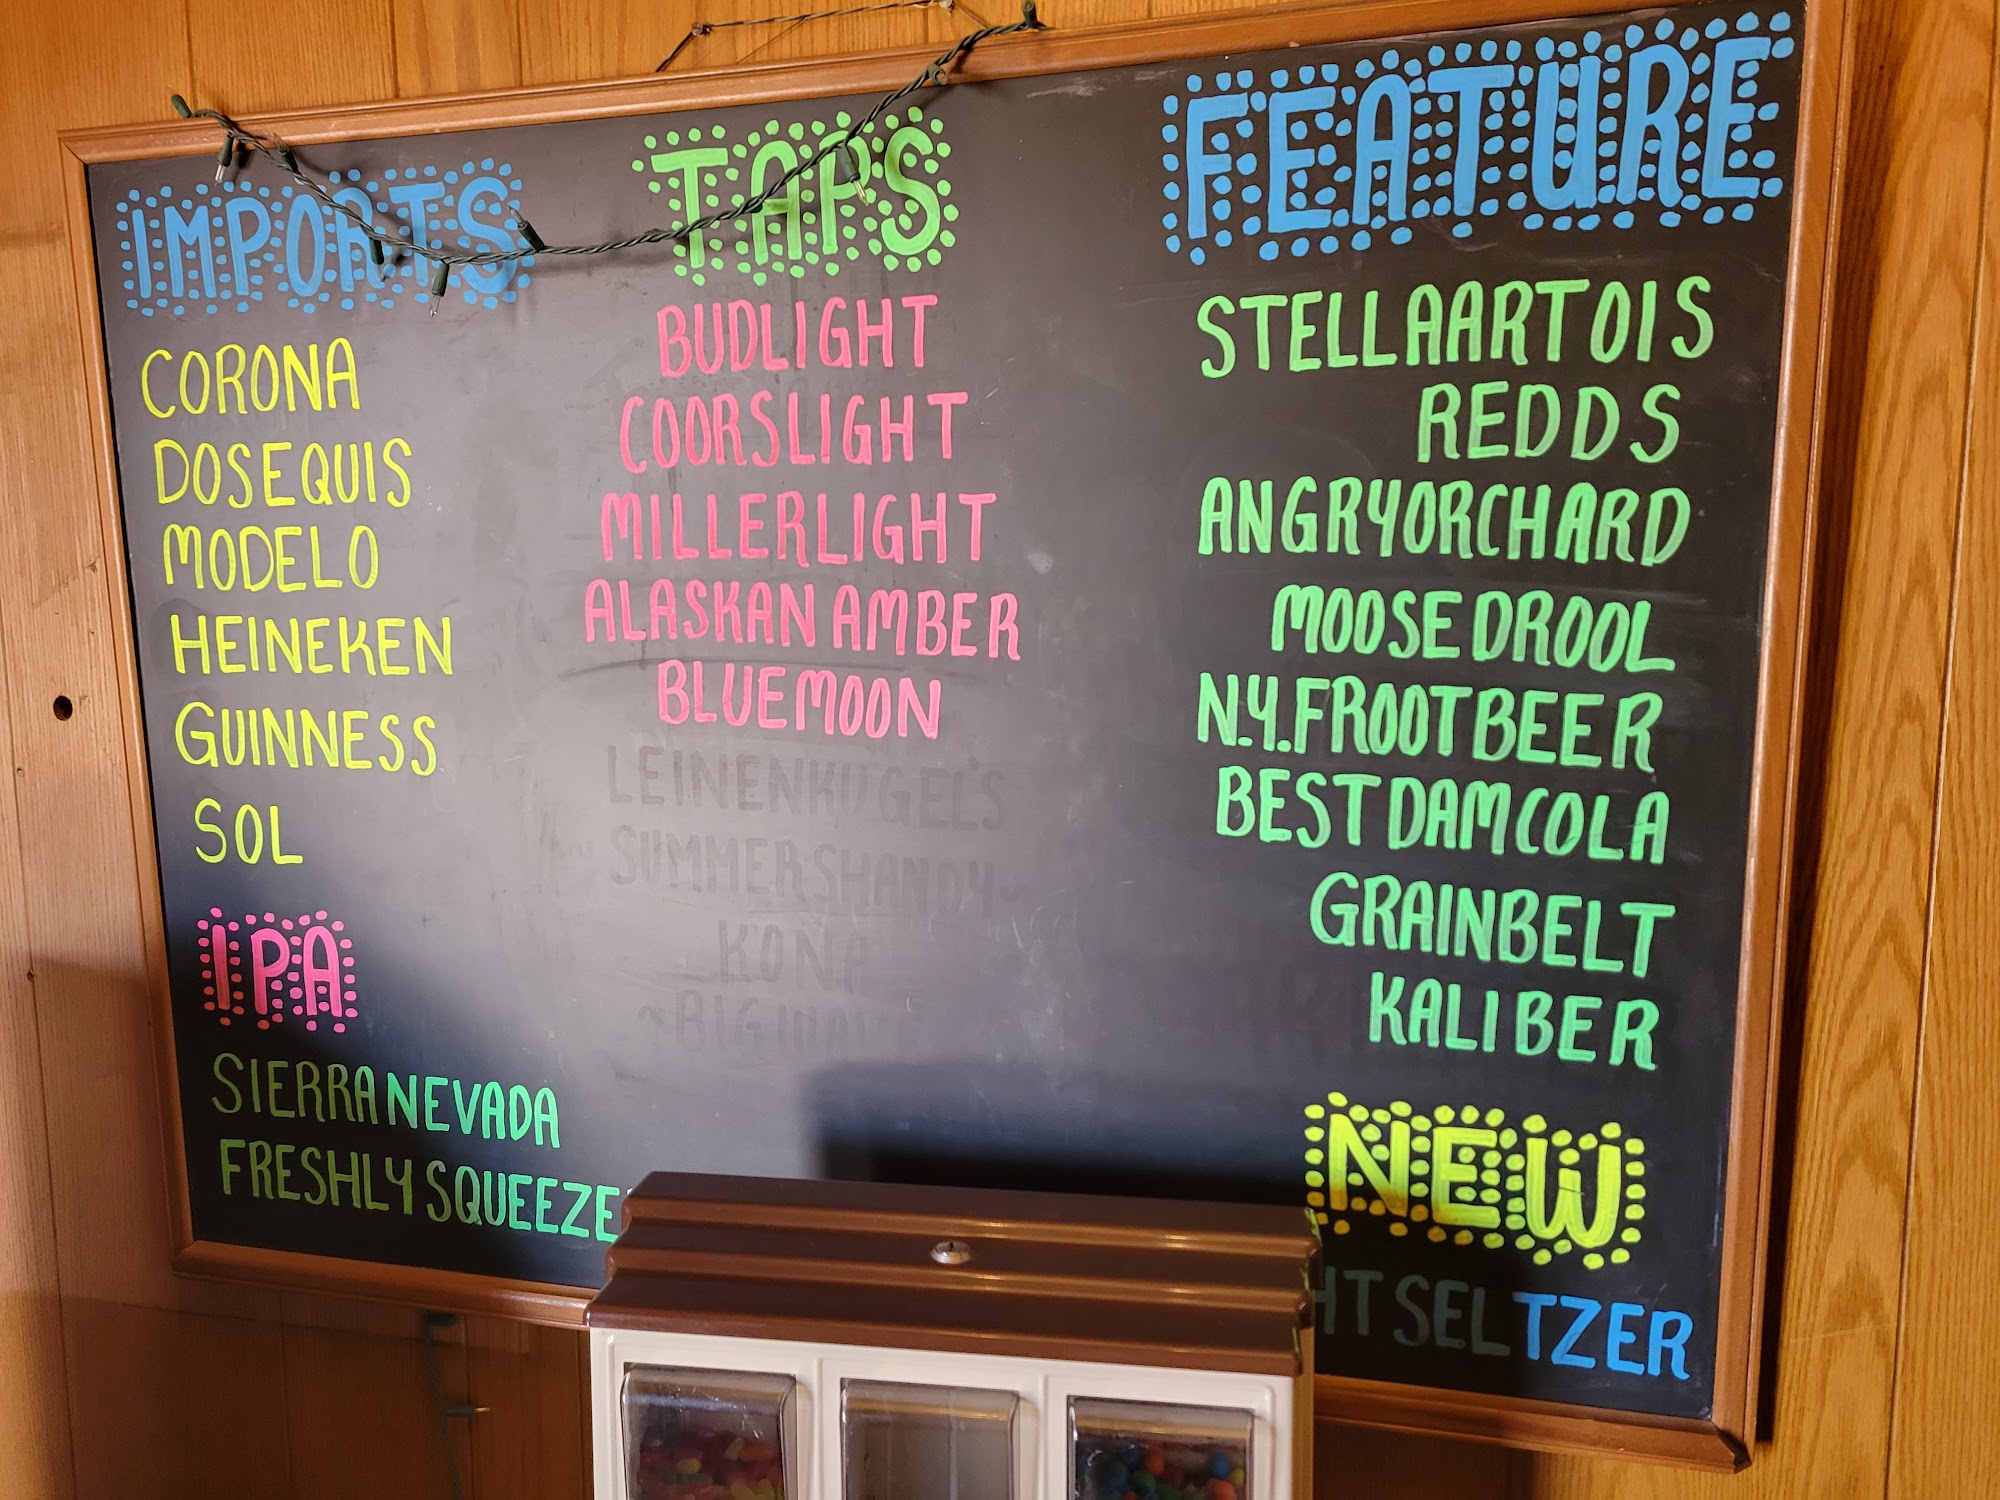 IMPORTS
CORONA
DOSEQUIS
MODELO
HEINEKEN
GUINNESS
SOL
IPA
SIERRA NEVADA
FRESHLY SQUEEZE
TAPS
BUDLIGHT
COORSLIGHT
MILLERLIGHT
ALASKAN AMBER
BLUEMOON
LEINENKUGEL'S
~ SUMMERSHANDY ~
KONA
~BIG
FEATURE
STELLAARTOIS
REDDS
ANGRYORCHARD
MOOSE DROOL
N.Y.FROOTBEER
BEST DAM COLA
GRAINBELT
KALIBER
NEW
HT SELTZER